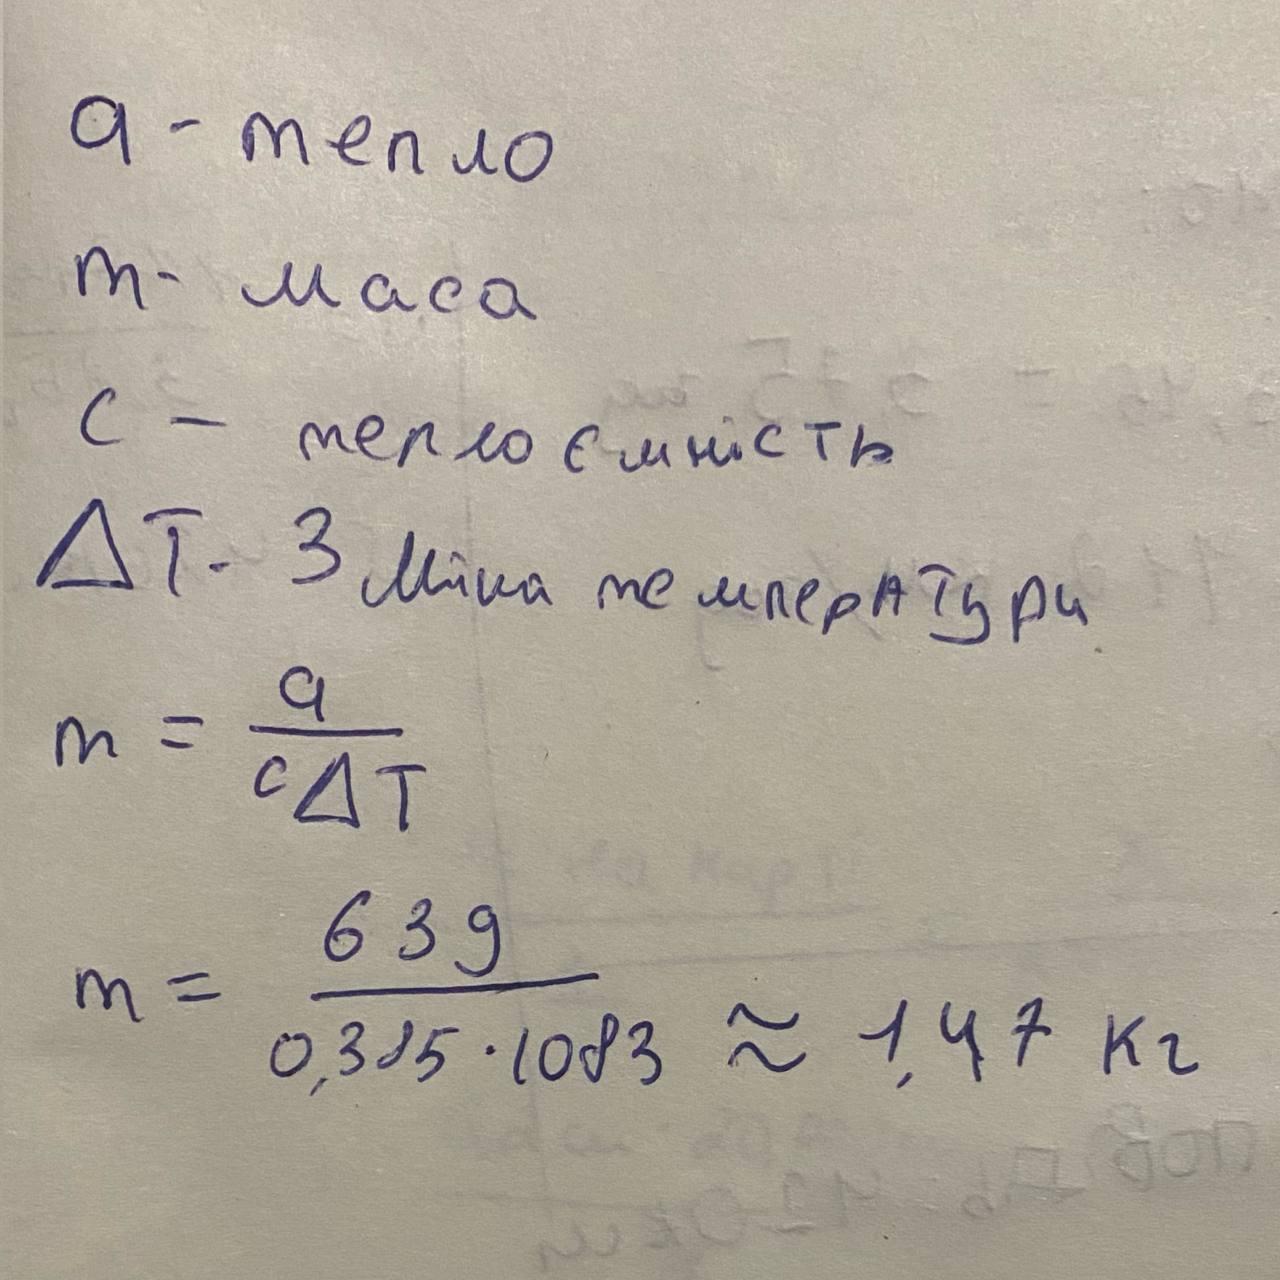 q - тепло
m - маса
c - теплоємність
ΔT - Зміна температури
m = q / cΔT
m = 639 / 0,385 · 1083 ≈ 1,47 кг